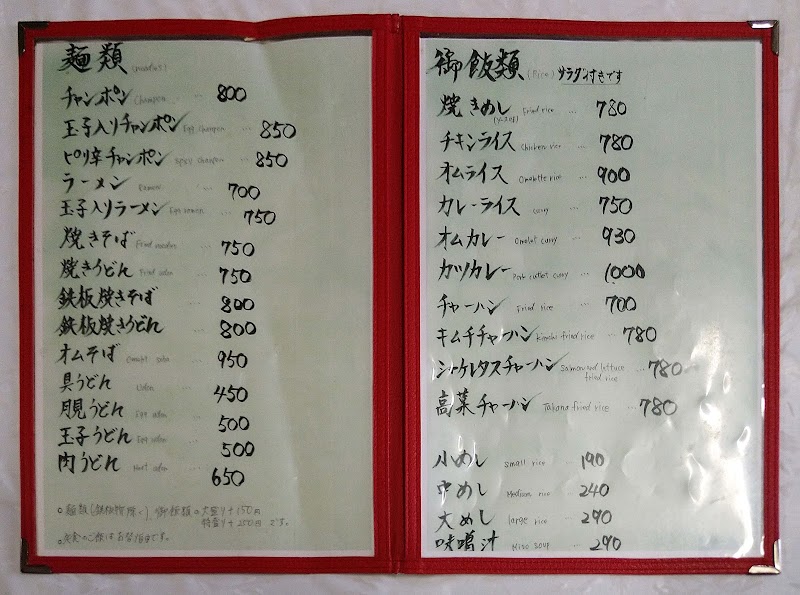 麺類 (noodles)
チャンポン Champon 800
玉子入りチャンポン Egg champon ... 850
ピリ辛チャンポン Spicy champon ... 850
ラーメン Ramen ... 700
玉子入りラーメン Egg ramen ... 750
焼きそば Fried noodles ... 750
焼きうどん Fried udon ... 750
鉄板焼きそば ... 800
鉄板焼きうどん ... 800
オムそば Omelet soba ... 950
具うどん Udon ... 450
月見うどん Egg udon ... 500
玉子うどん Egg udon ... 500
肉うどん Meat udon ... 650
○麺類(鉄板物除く)、御飯類の大盛り+150円
特盛り+250円です。
御飯類 (Rice) サラダ付きです
焼きめし Fried rice ... 780
(ソース味)
チキンライス Chicken rice ... 780
オムライス Omelette rice ... 900
カレーライス curry ... 750
オムカレー Omelet curry ... 930
カツカレー Pork cutlet curry ... 1000
チャーハン Fried rice ... 700
キムチチャーハン Kimchi fried rice ... 780
シャケレタスチャーハン Salmon and lettuce fried rice ... 780
高菜チャーハン Takana fried rice ... 780
小めし small rice ... 190
中めし Medium rice ... 240
大めし large rice ... 290
味噌汁 Miso soup ... 290